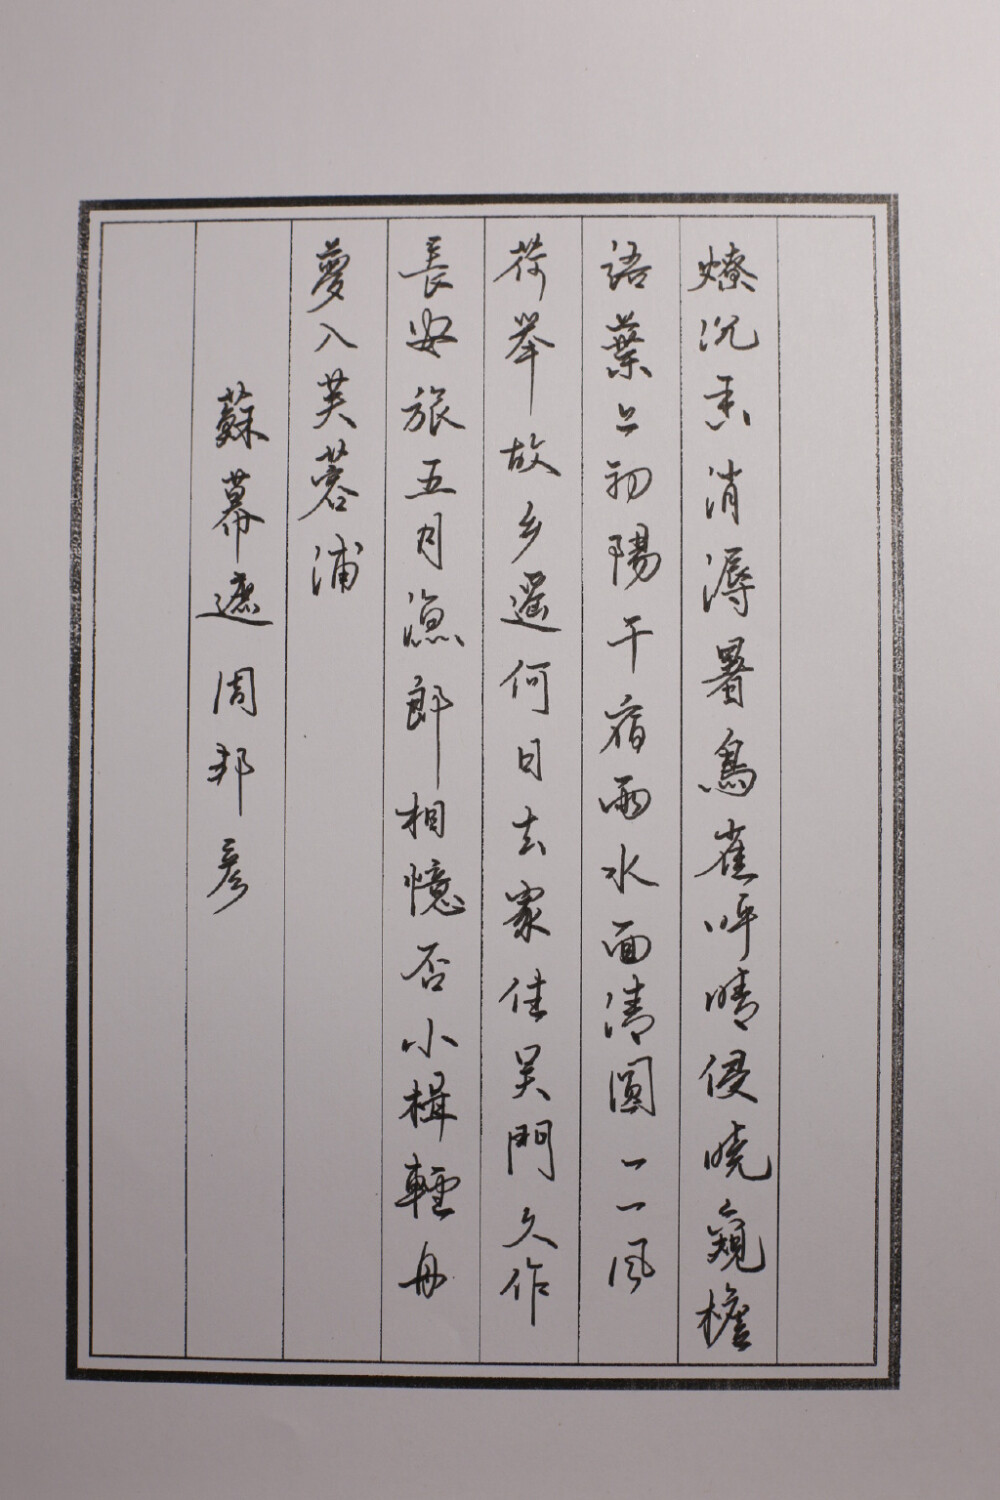 燎沉香消溽暑鳥雀呼晴侵曉窺檐
語葉上初陽干宿雨水面清圓一一風
荷举故乡遥何日去家住吴門久作
長安旅五月漁郎相憶否小楫輕舟
夢入芙蓉浦
蘇幕遮周邦彦